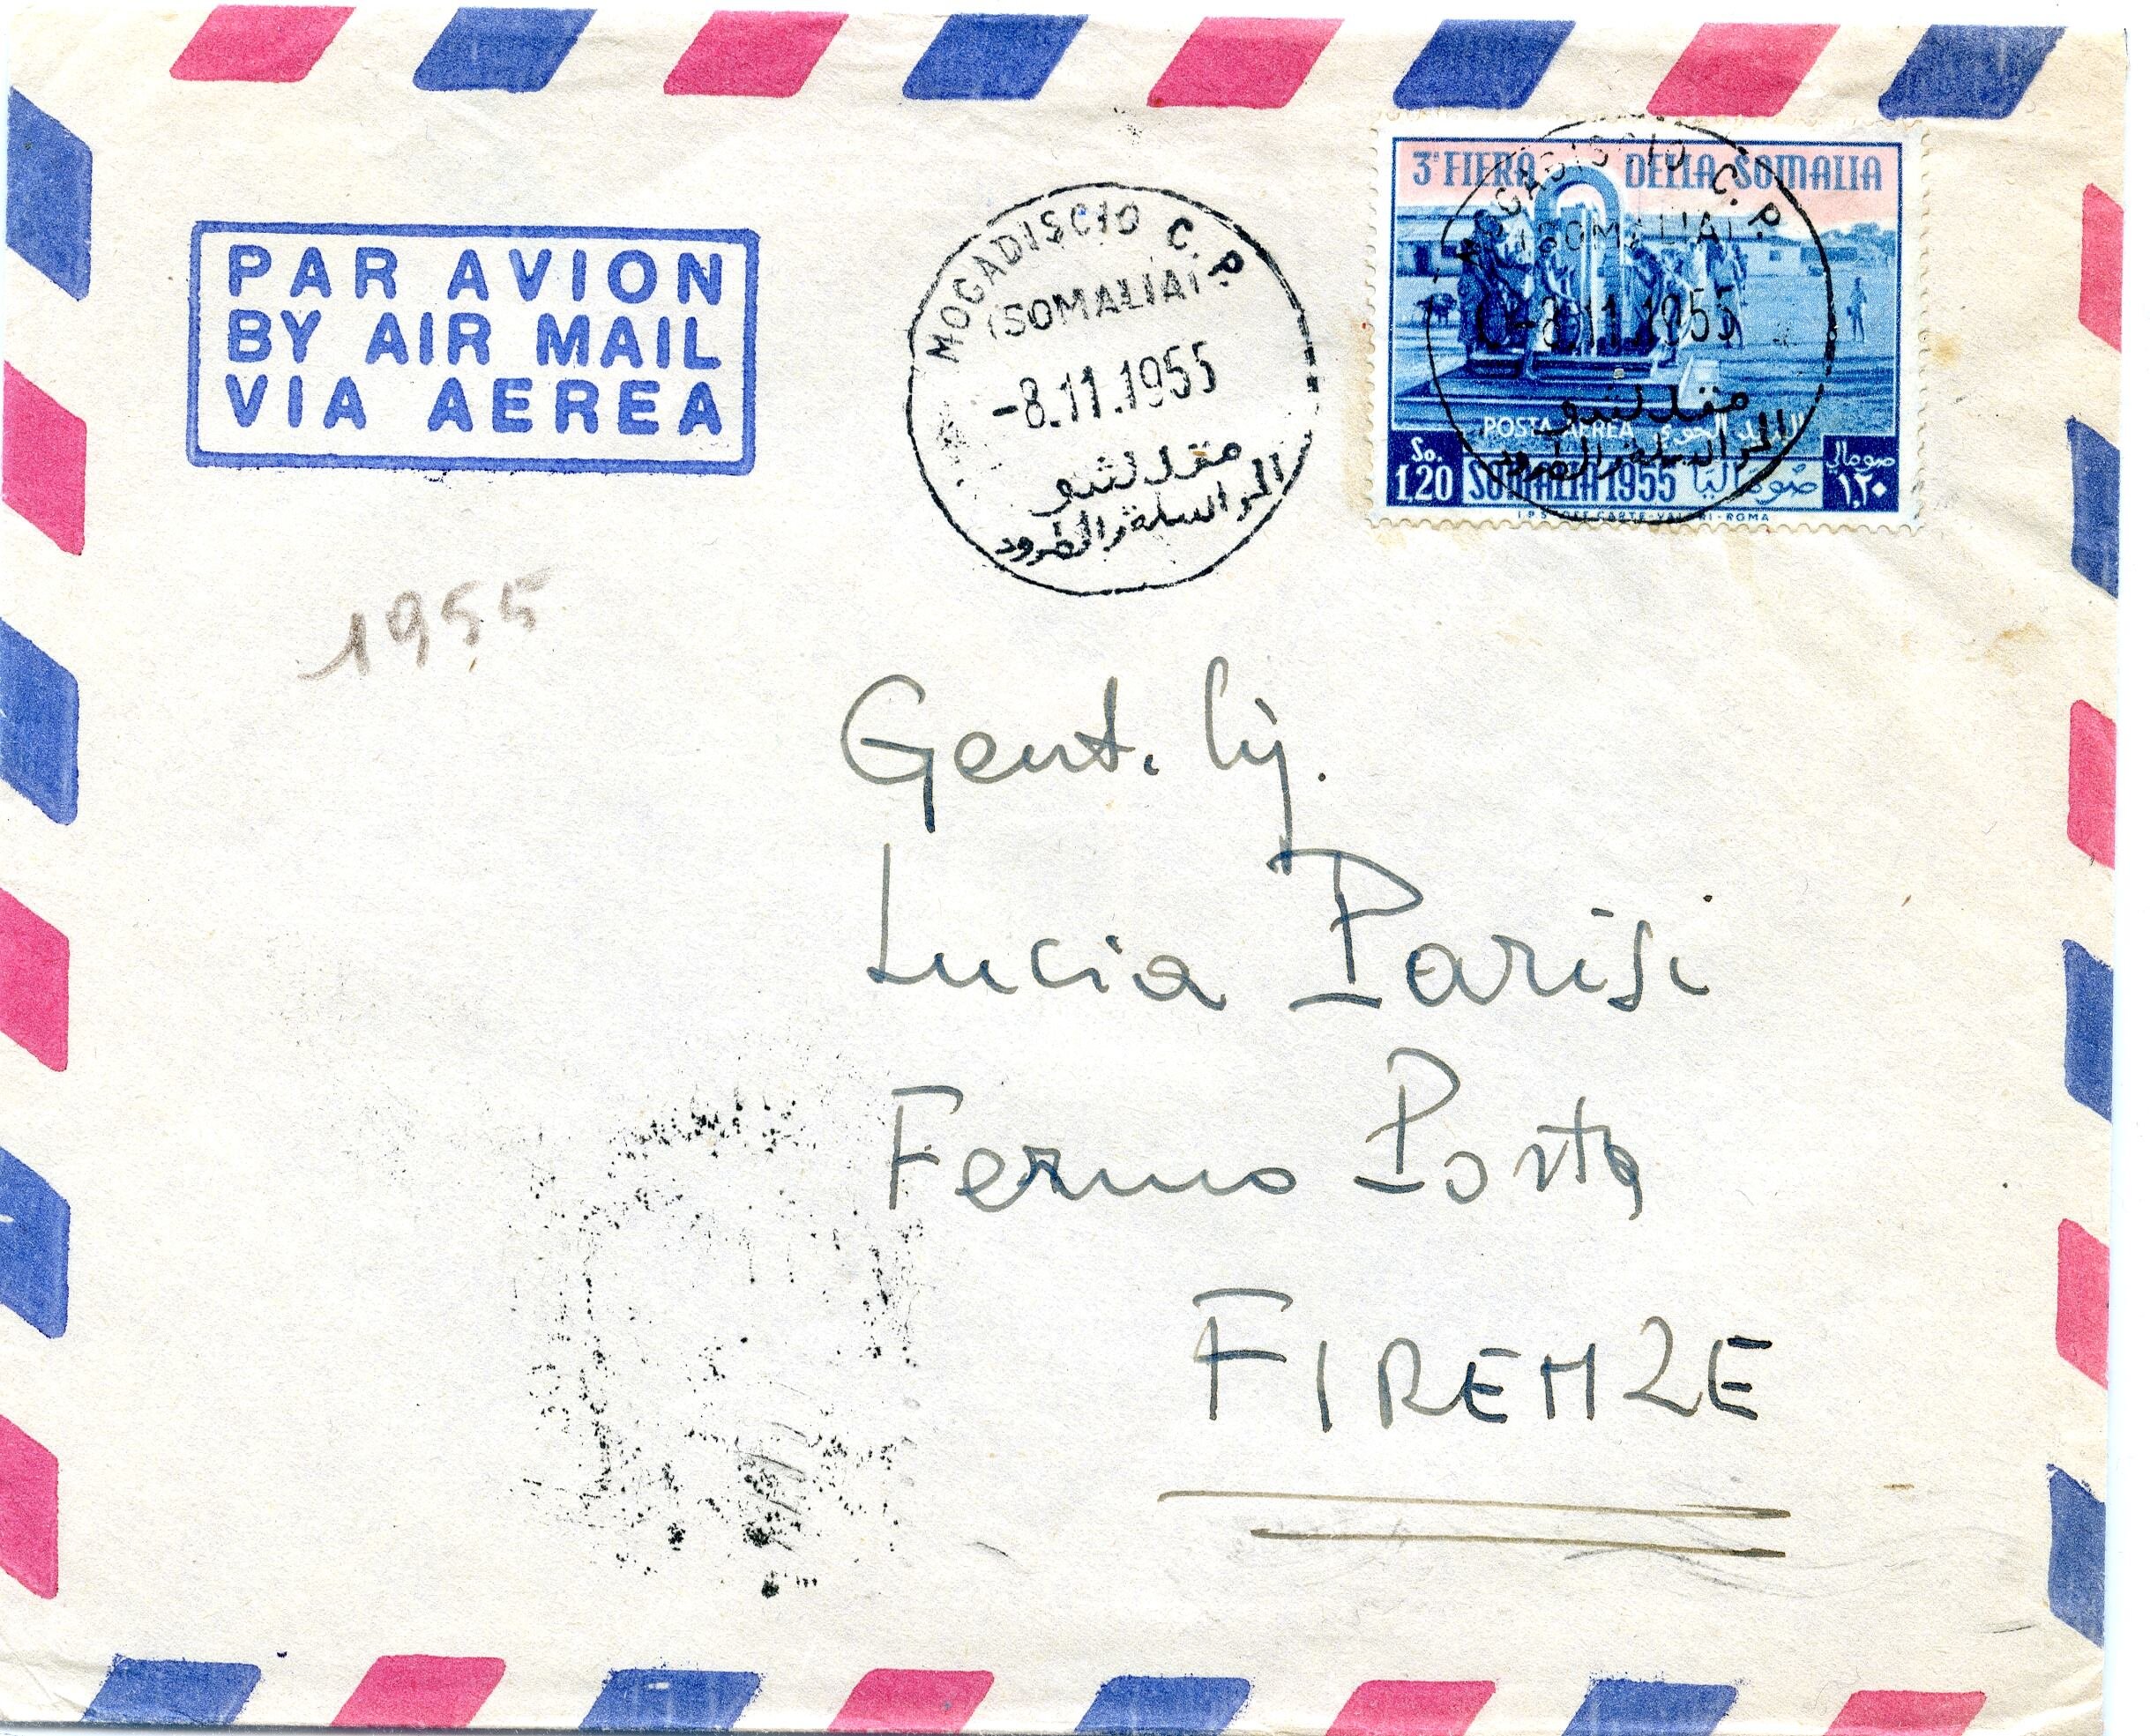 PAR AVION
BY AIR MAIL
VIA AEREA
MOGADISCIO C.P.
(SOMALIA)
-8.11.1955
مقدلشو
3ª FIERA DELLA SOMALIA
MOGADISCIO C.P.
(SOMALIA)
-8.11.1955
مقدلشو
POSTA AEREA
So.
1.20
SOMALIA 1955 صوماليا
صومالي
١.٢٠
I.P.S. OFF. CARTE-VALORI-ROMA
1955
Gent. Sig.
Lucia Parisi
Fermo Posta
FIRENZE